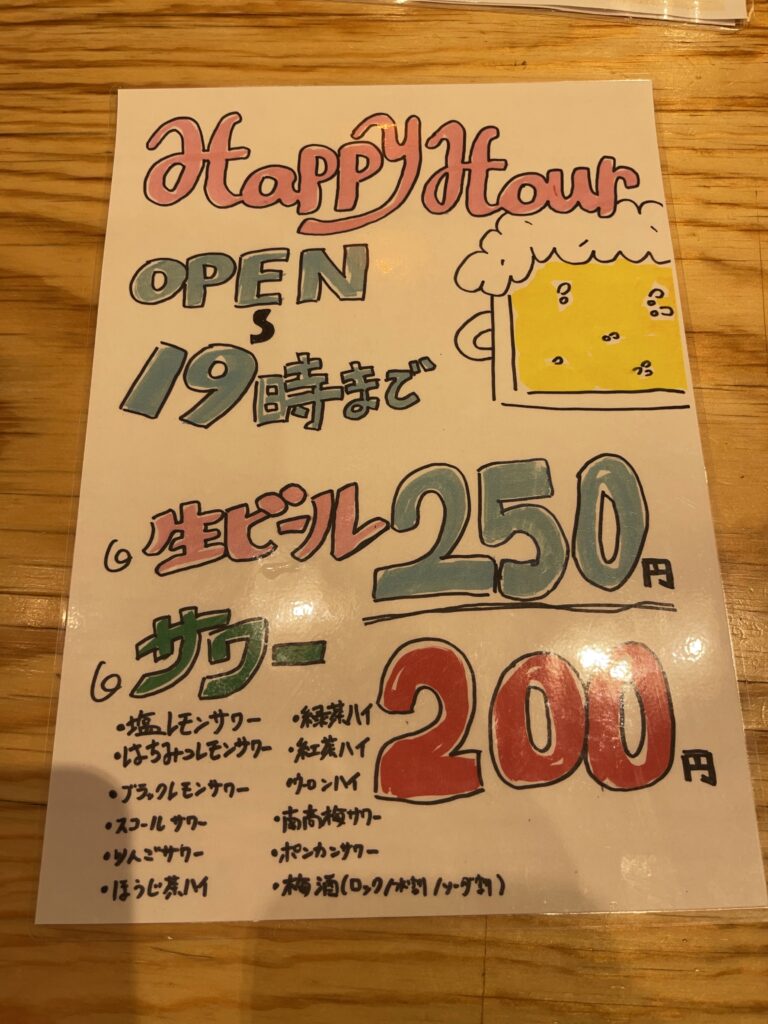 Happy Hour
OPEN
～
19時まで
生ビール 250円
サワー 200円
・塩レモンサワー
・はちみつレモンサワー
・ブラックレモンサワー
・スコールサワー
・りんごサワー
・ほうじ茶ハイ
・緑茶ハイ
・紅茶ハイ
ウーロンハイ
・南高梅サワー
・ポンカンサワー
・梅酒(ロック/水割/ソーダ割)